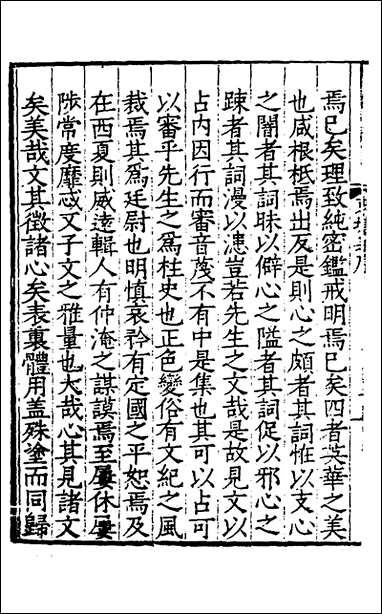 焉已矣理致純密鑑戒明焉已矣四者英華之美
也咸根柢焉出反是則心之頗者其詞惟以支心
之闇者其詞昧以僻心之隘者其詞促以邪心之
踈者其詞漫以漶豈若先生之文哉是故見文以
占內因行而審音蔑不有中是集也其可以占可
以審乎先生之爲柱史也正色變俗有文紀之風
裁焉其爲廷尉也明慎哀矜有定國之平恕焉及
在西夏則威遠輯人有仲淹之謀謨焉至屢休屢
陟常度靡忒又子文之雅量也大哉心其見諸文
矣美哉文其徵諸心矣表裏體用盖殊塗而同歸